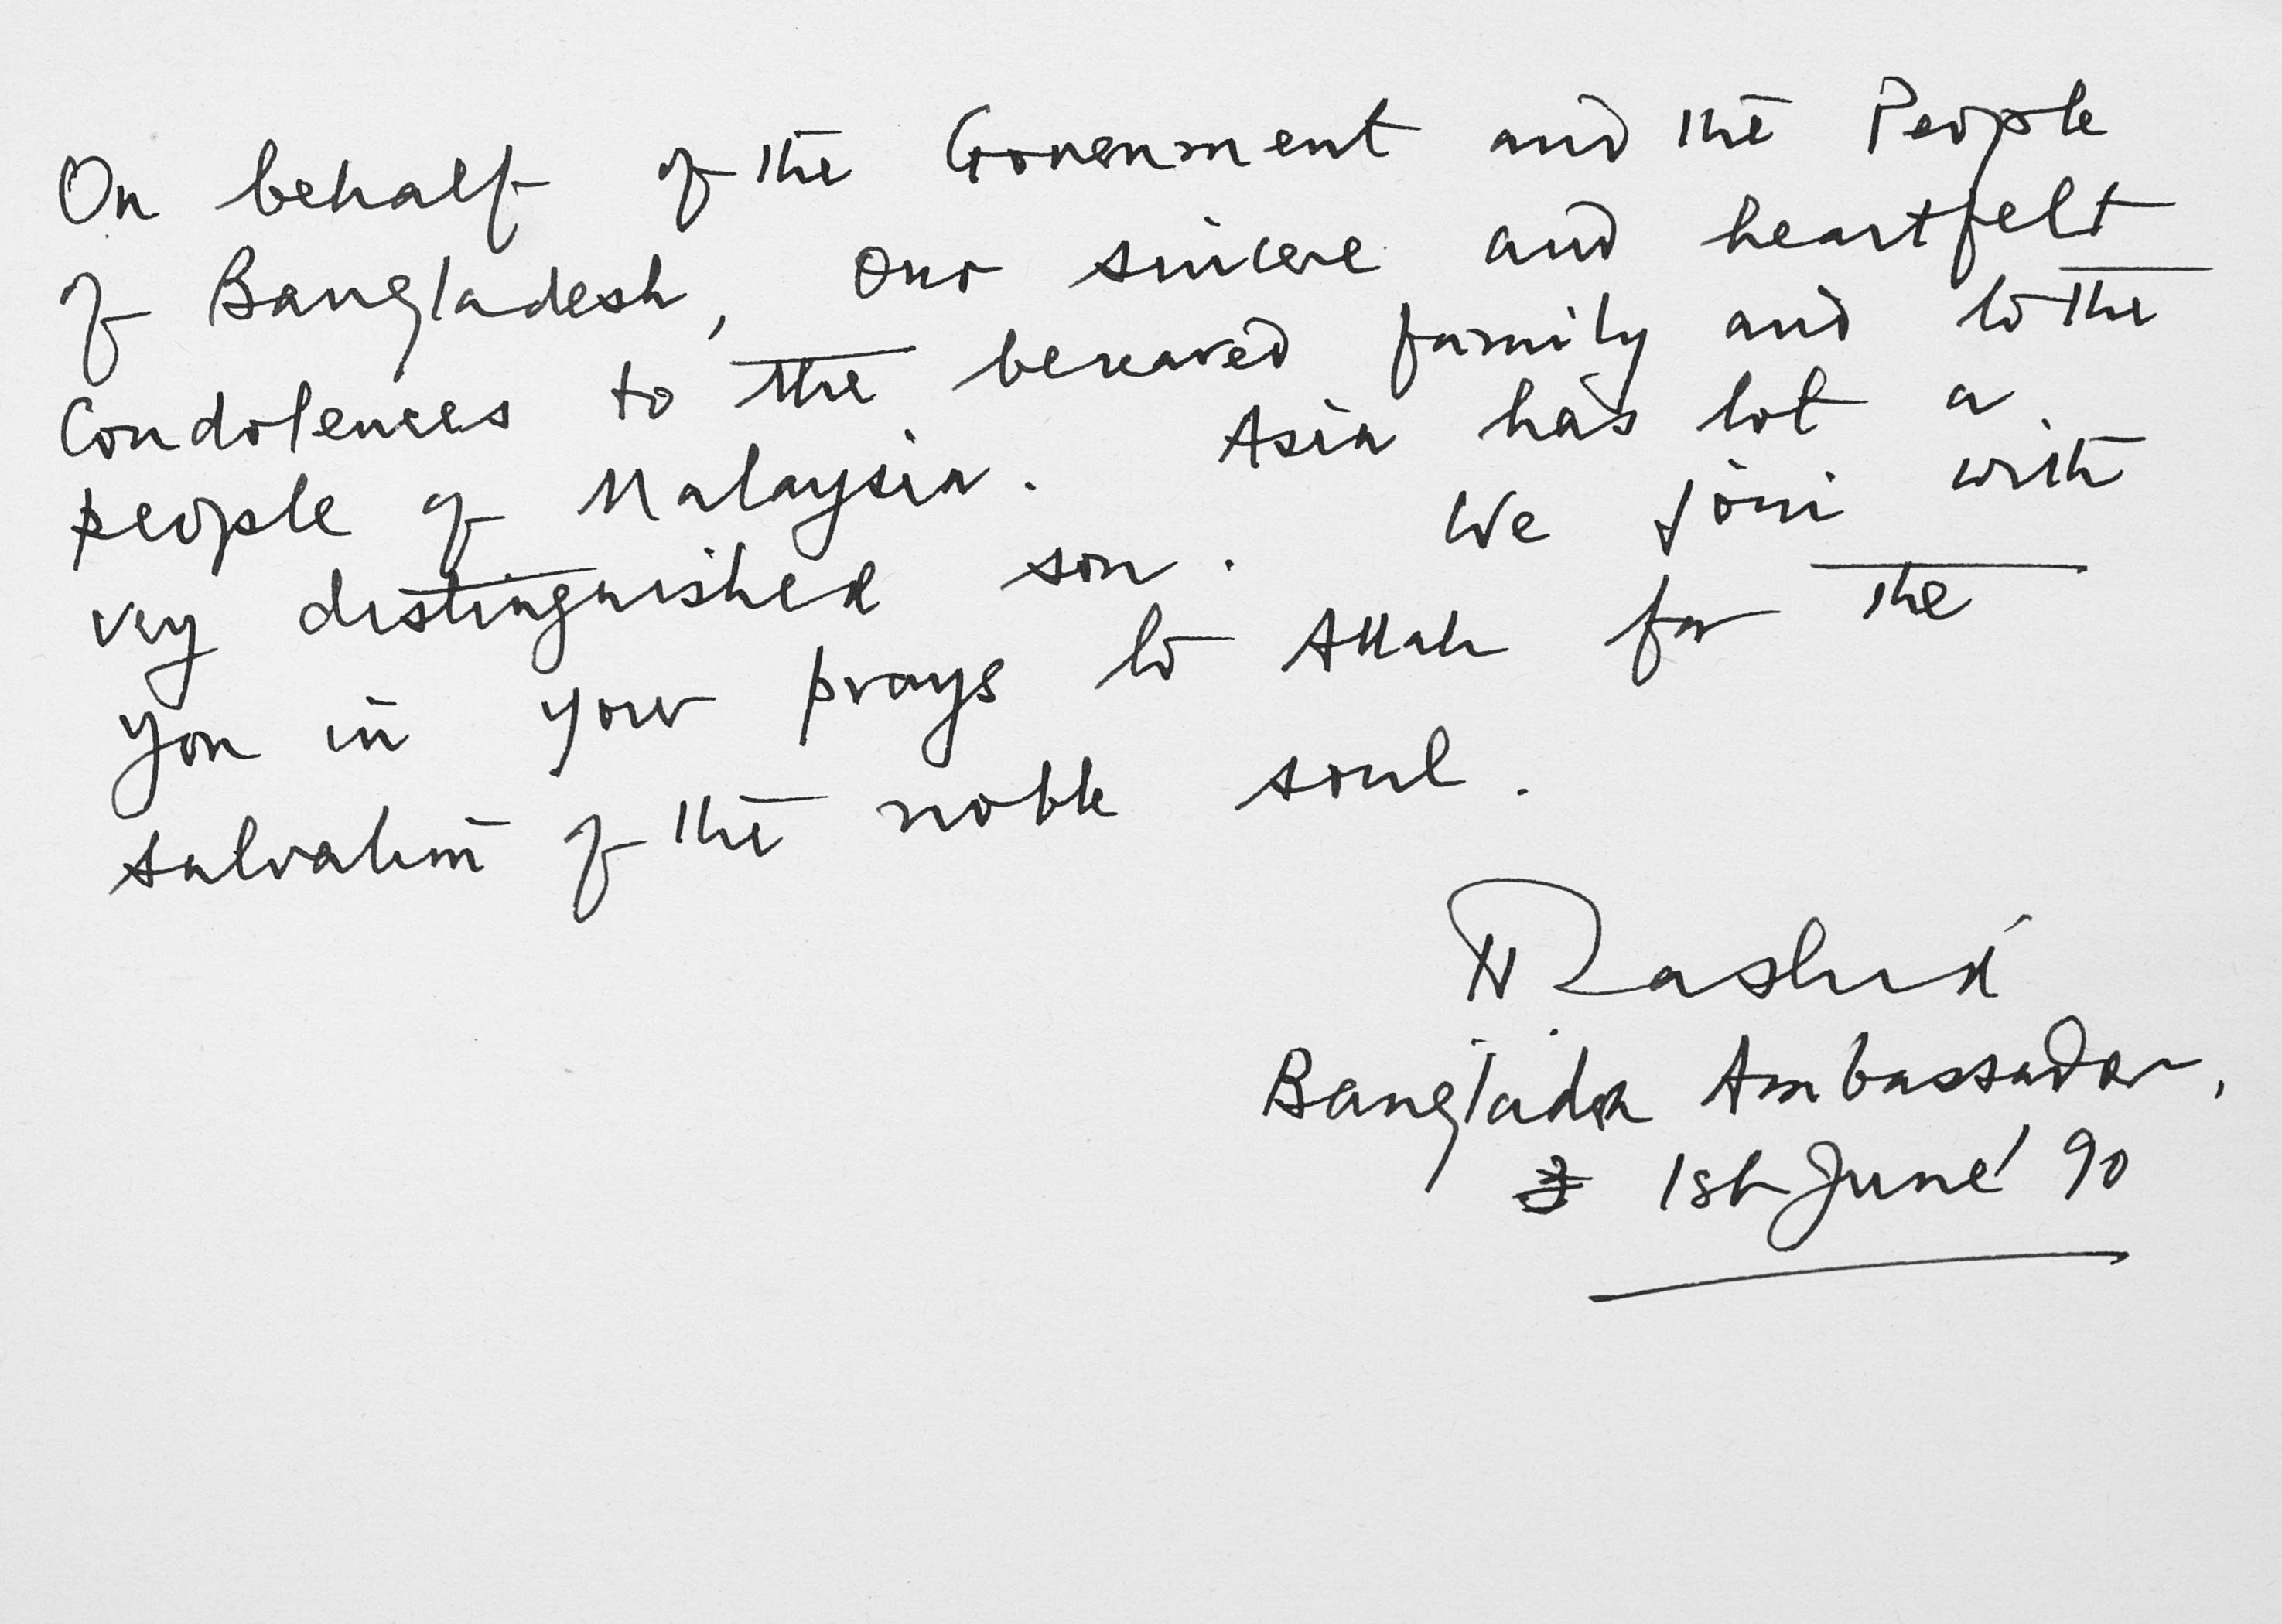 On behalf of the Government and the People
of Bangladesh, Our sincere and heartfelt
Condolences to the bereaved family and to the
people of Malaysia. Asia has lot a
very distinguished son. We join with
you in your prays to Allah for the
salvation of the noble soul.
Rashid
Bangladesh Ambassador,
1st June' 90